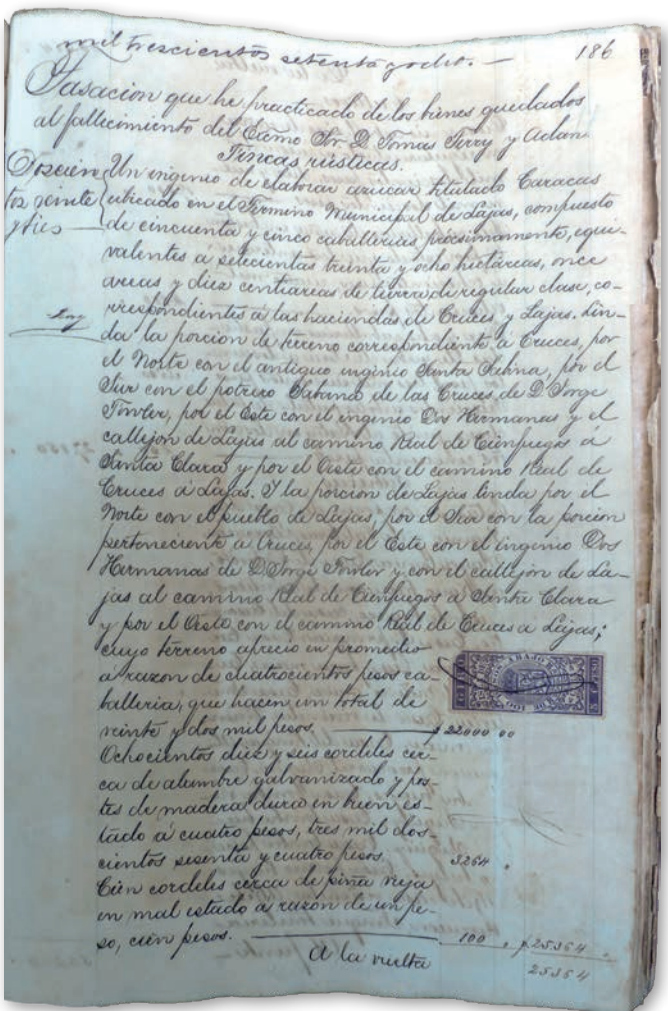 mil trescientos setenta y ocho. — 186
Tasacion que he practicado de los bienes quedados
al fallecimiento del Excmo Sr. D. Tomas Terry y Adan
Fincas rústicas.
Doscien Un ingenio de elaborar azucar titulado Caracas
tos veinte ubicado en el Término Municipal de Lajas, compuesto
y tres — de cincuenta y cinco caballerias, procsimamente, equi-
valentes á setecientas treinta y ocho hectáreas, once
areas y diez centiareas de tierra de regular clase, co-
rrespondientes á las haciendas de Cruces y Lajas. Lin-
da la porcion de terreno correspondiente á Cruces, por
el Norte con el antiguo ingenio Santa Sabina, por el
Sur con el potrero Sabana de las Cruces, de D. Jorge
Fowler, por el Este con el ingenio Dos Hermanas y el
callejon de Lajas al camino Real de Cienfuegos á
Santa Clara y por el Oeste con el camino Real de
Cruces á Lajas. Y la porcion de Lajas linda por el
Norte con el pueblo de Lajas, por el Sur con la porcion
perteneciente á Cruces, por el Este con el ingenio Dos
Hermanas de D. Jorge Fowler y con el callejon de La-
jas al camino Real de Cienfuegos á Santa Clara
y por el Oeste con el camino Real de Cruces a Lajas;
cuyo terreno aprecio en promedio
á razon de cuatrocientos pesos ca-
balleria, que hacen un total de
veinte y dos mil pesos. — $ 22000 00
Ochocientos diez y seis cordeles cer-
ca de alambre galvanizado y pos-
tes de madera dura en buen es-
tado á cuatro pesos, tres mil dos-
cientos sesenta y cuatro pesos. 3264 "
Cien cordeles cerca de piña vieja
en mal estado á razon de un pe-
so, cien pesos. — 100 " $ 25364 "
A la vuelta 25364